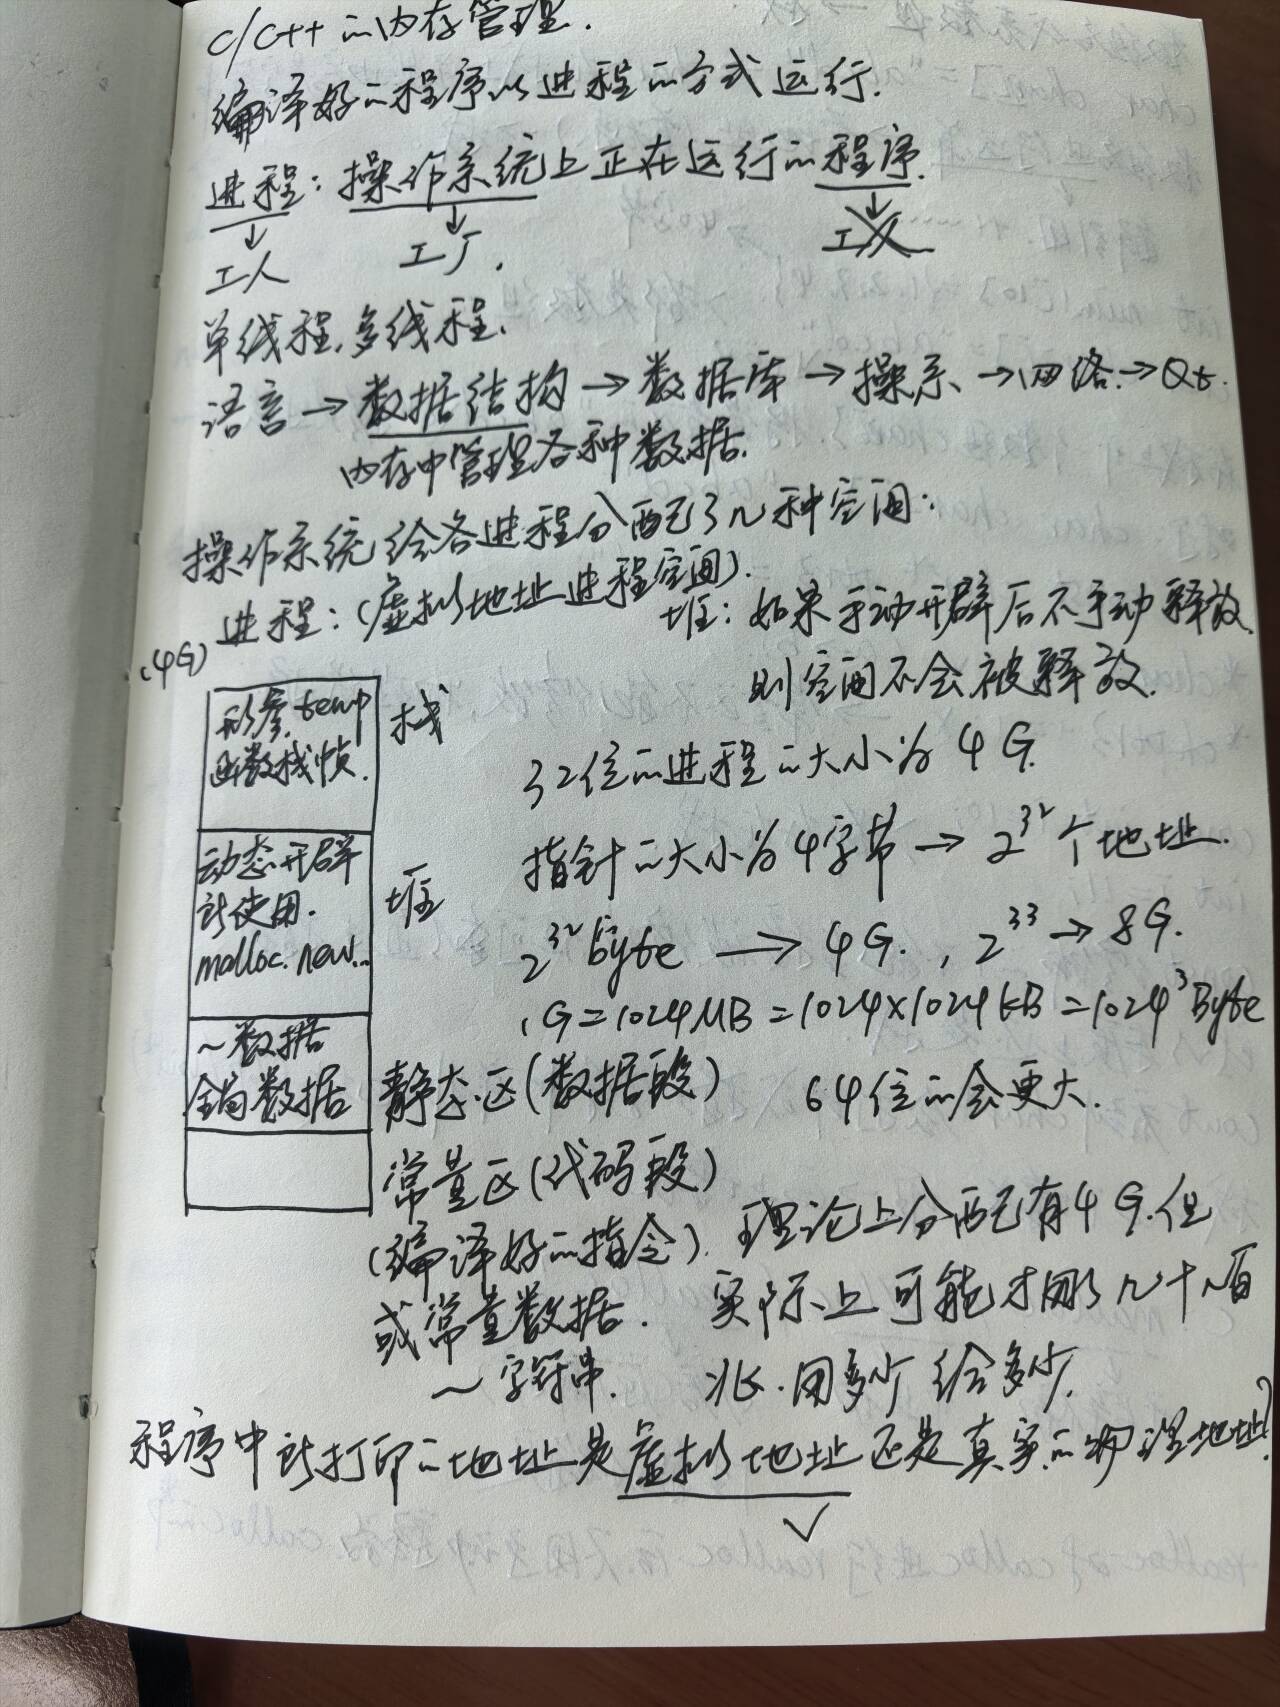 C/C++的内存管理.
编译好的程序以进程的方式运行.
进程: 操作系统上正在运行的程序.
↓ ↓ ↓
工人 工厂.
单线程.多线程.
语言→数据结构→数据库→操系→网络.→Qt.
内存中管理各种数据.
操作系统给各进程分配了几种空间:
进程:(虚拟地址进程空间).
(4G)
堆: 如果手动开辟后不手动释放.
则空间不会被释放.
形参.temp
函数栈帧.
栈
32位的进程的大小为4G.
动态开辟
所使用.
malloc.new...
堆
指针的大小为4字节→2³²个地址.
2³² byte → 4G. , 2³³→8G.
1G=1024MB=1024×1024KB=1024³Byte
~数据
全局数据
静态区(数据段)
64位的会更大.
常量区(代码段)
(编译好的指令).
或常量数据.
~字符串.
理论上分配有4G.但
实际上可能才用了几十几百
兆.用多少给多少.
程序中所打印的地址是虚拟地址还是真实的物理地址?
✓